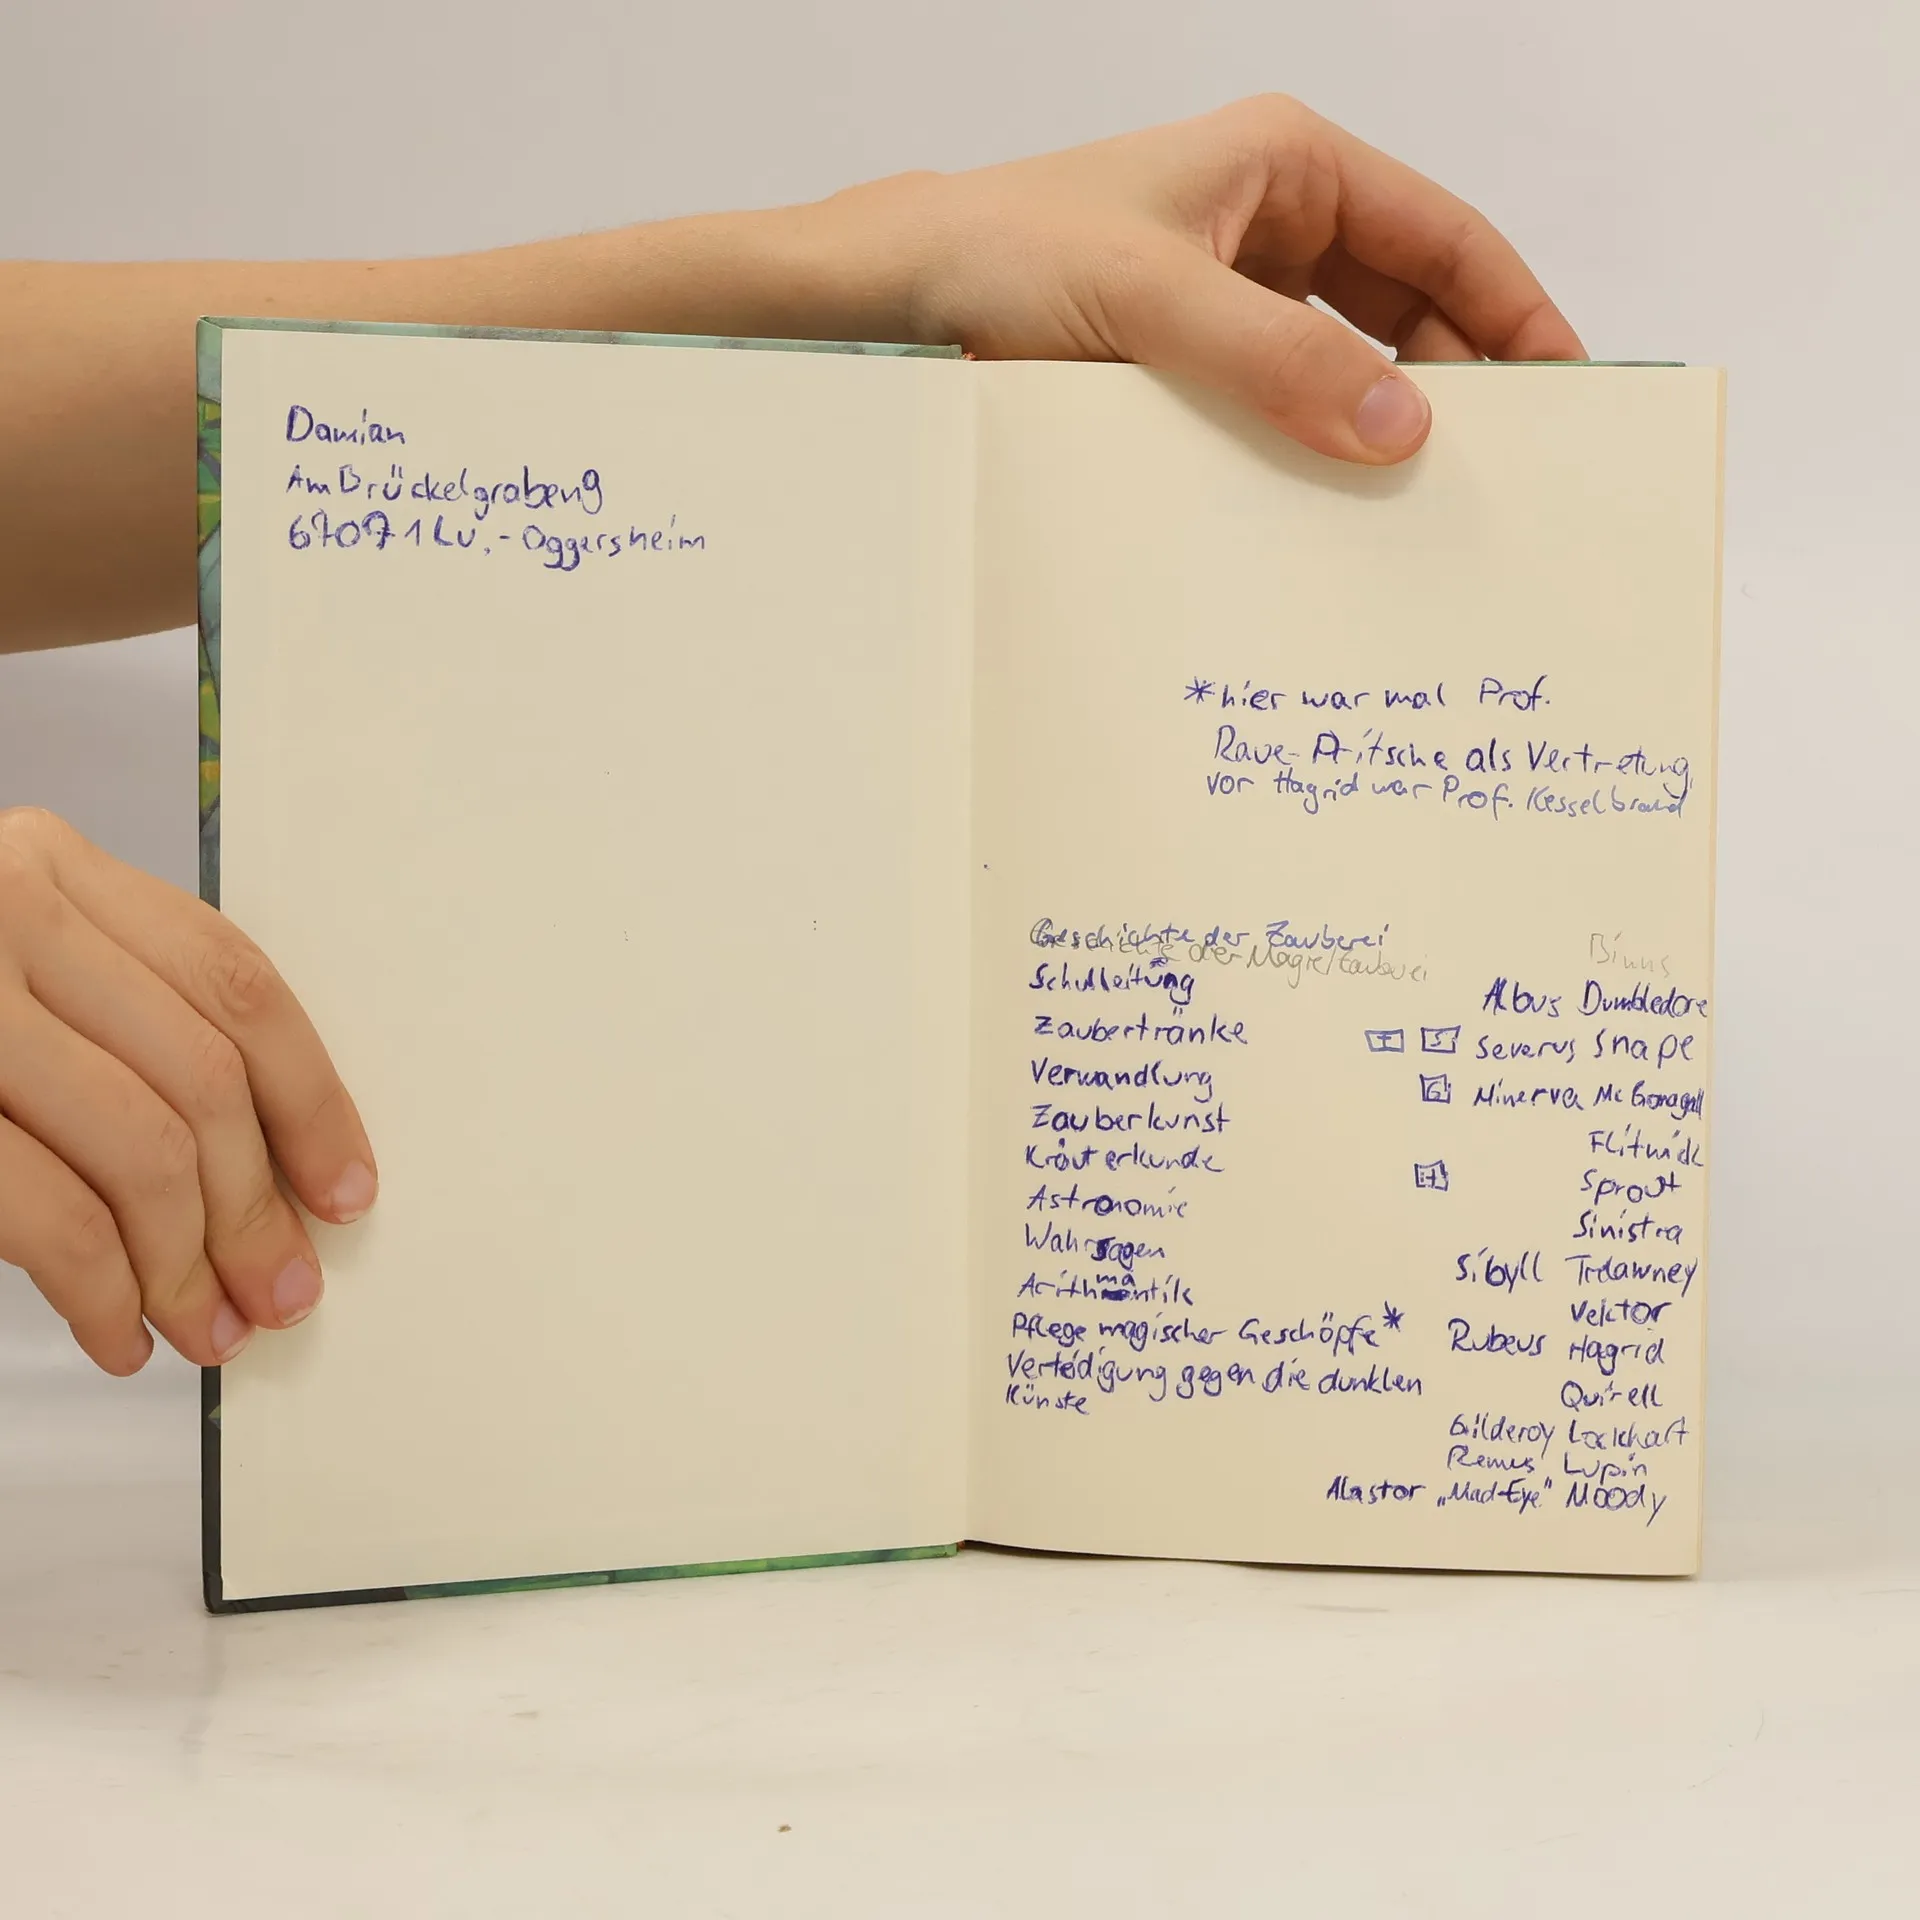 Damian
Am Brückelgraben 9
67071 Lu.-Oggersheim
*hier war mal Prof.
Raue-Pritsche als Vertretung,
vor Hagrid war Prof. Kesselbrand
Geschichte der Zauberei
Geschichte der Magie/Zauberei Binns
Schulleitung Albus Dumbledore
Zaubertränke + S Severus Snape
Verwandlung G Minerva McGonagall
Zauberkunst Flitwick
Kräuterkunde H Sprout
Astronomie Sinistra
Wahrsagen Sibyll Trelawney
Arithmantik Vektor
Pflege magischer Geschöpfe* Rubeus Hagrid
Verteidigung gegen die dunklen Quirell
Künste
Gilderoy Lockhart
Remus Lupin
Alastor „Mad-Eye" Moody